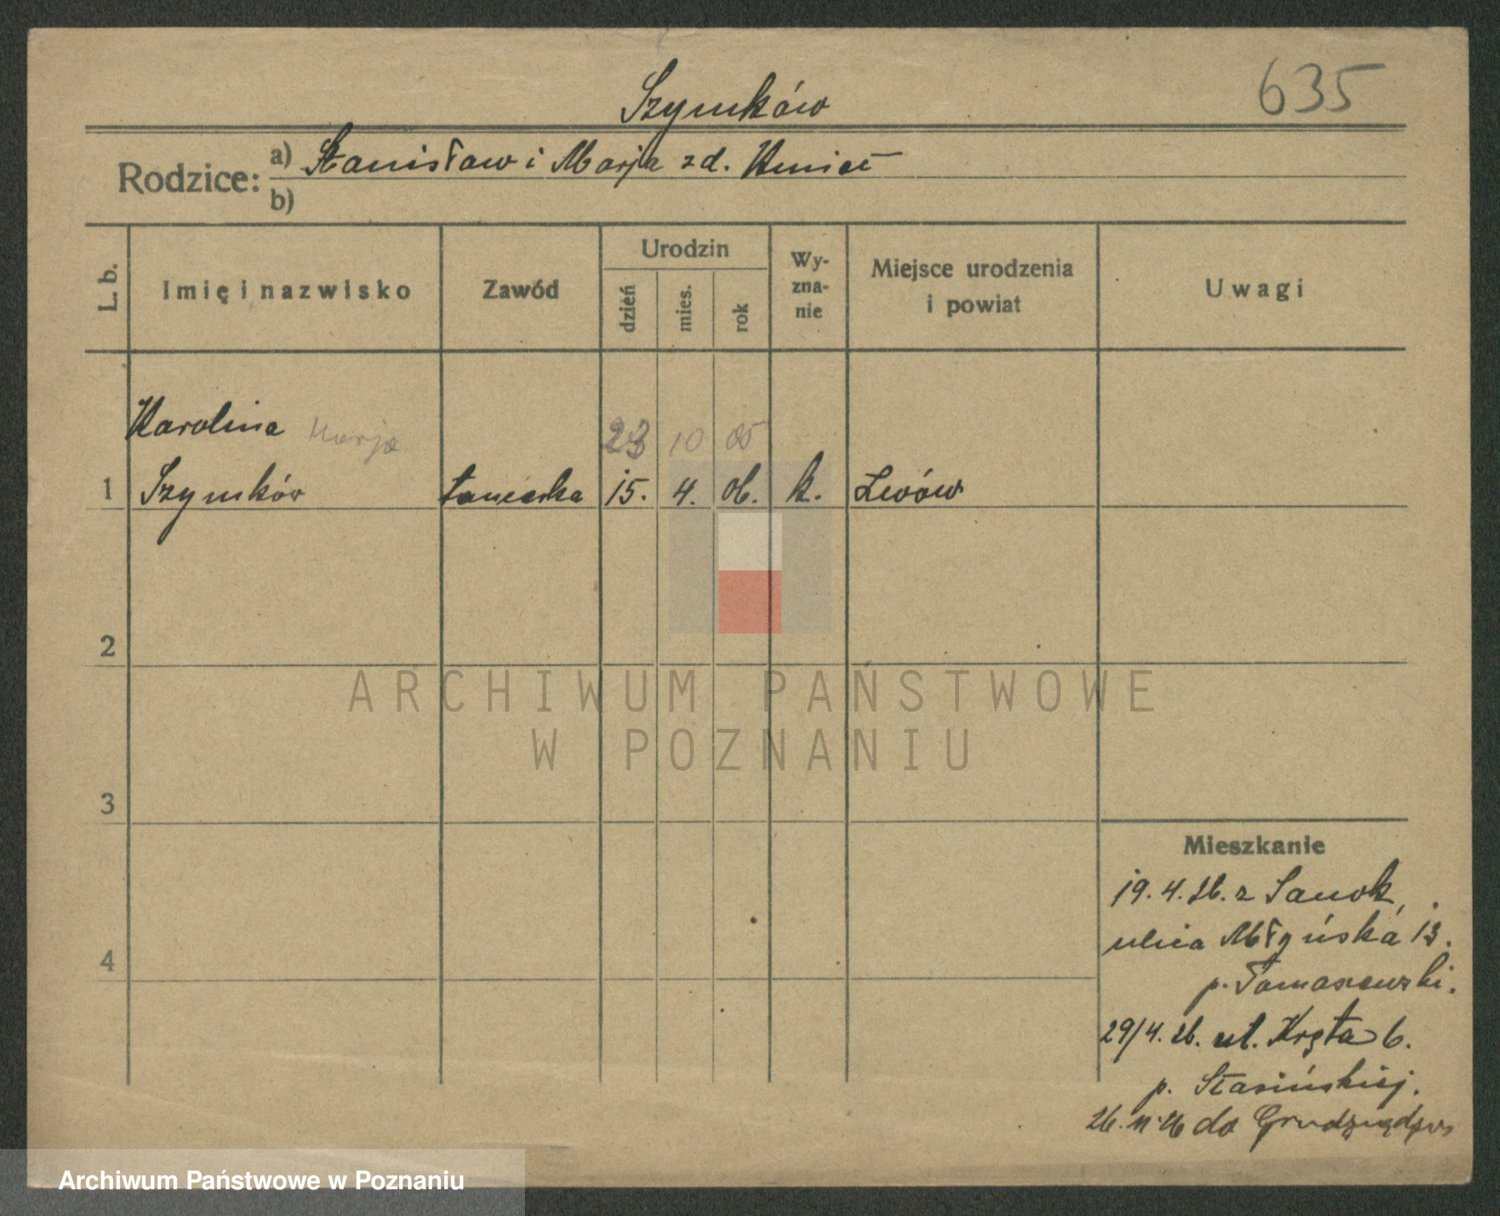 635
Szymków
Rodzice: a) Stanisław i Marja zd. Kmieć
b)
L. b. Imię i nazwisko Zawód Urodzin dzień mies. rok Wyznanie Miejsce urodzenia i powiat Uwagi
Karolina Marja 23 10 05
1 Szymków tancerka 15. 4. 06. k. Lwów
2
ARCHIWUM PAŃSTWOWE
W POZNANIU
3
Mieszkanie
19.4.26. z Sanok,
ulica Młyńska 13.
p. Tomaszewski.
4
29/4.26. ul. Kręta 6.
p. Stasińskiej.
26.11.26 do Grudziądza
Archiwum Państwowe w Poznaniu